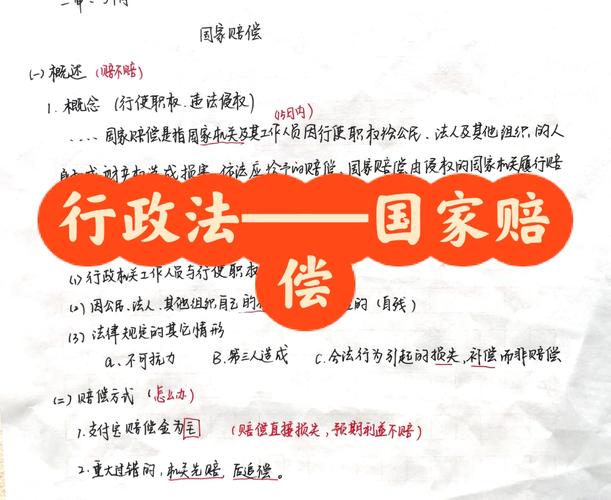 国家赔偿
(一) 概述 (赔不赔)
1. 概念 (行使职权、违法侵权)
(15日内)
.... 国家赔偿是指国家机关及其工作人员因行使职权给公民、法人及其他组织的人
造成损害, 依法应给予的赔偿, 国家赔偿由侵权的国家机关履行赔
行政法——国家赔
偿
(1) 行政机关工作人员与行使职权
(2) 因公民、法人、其他组织自己的 的 (自残)
(3) 法律规定的其它情形
a. 不可抗力 B. 第三人造成 C. 合法行为引起的损失, 补偿而非赔偿
(二) 赔偿方式 (怎么办)
1. 支付赔偿金为主 (赔偿直接损失, 预期利益不赔)
2. 重大过错的, 机关先赔, 后追偿。